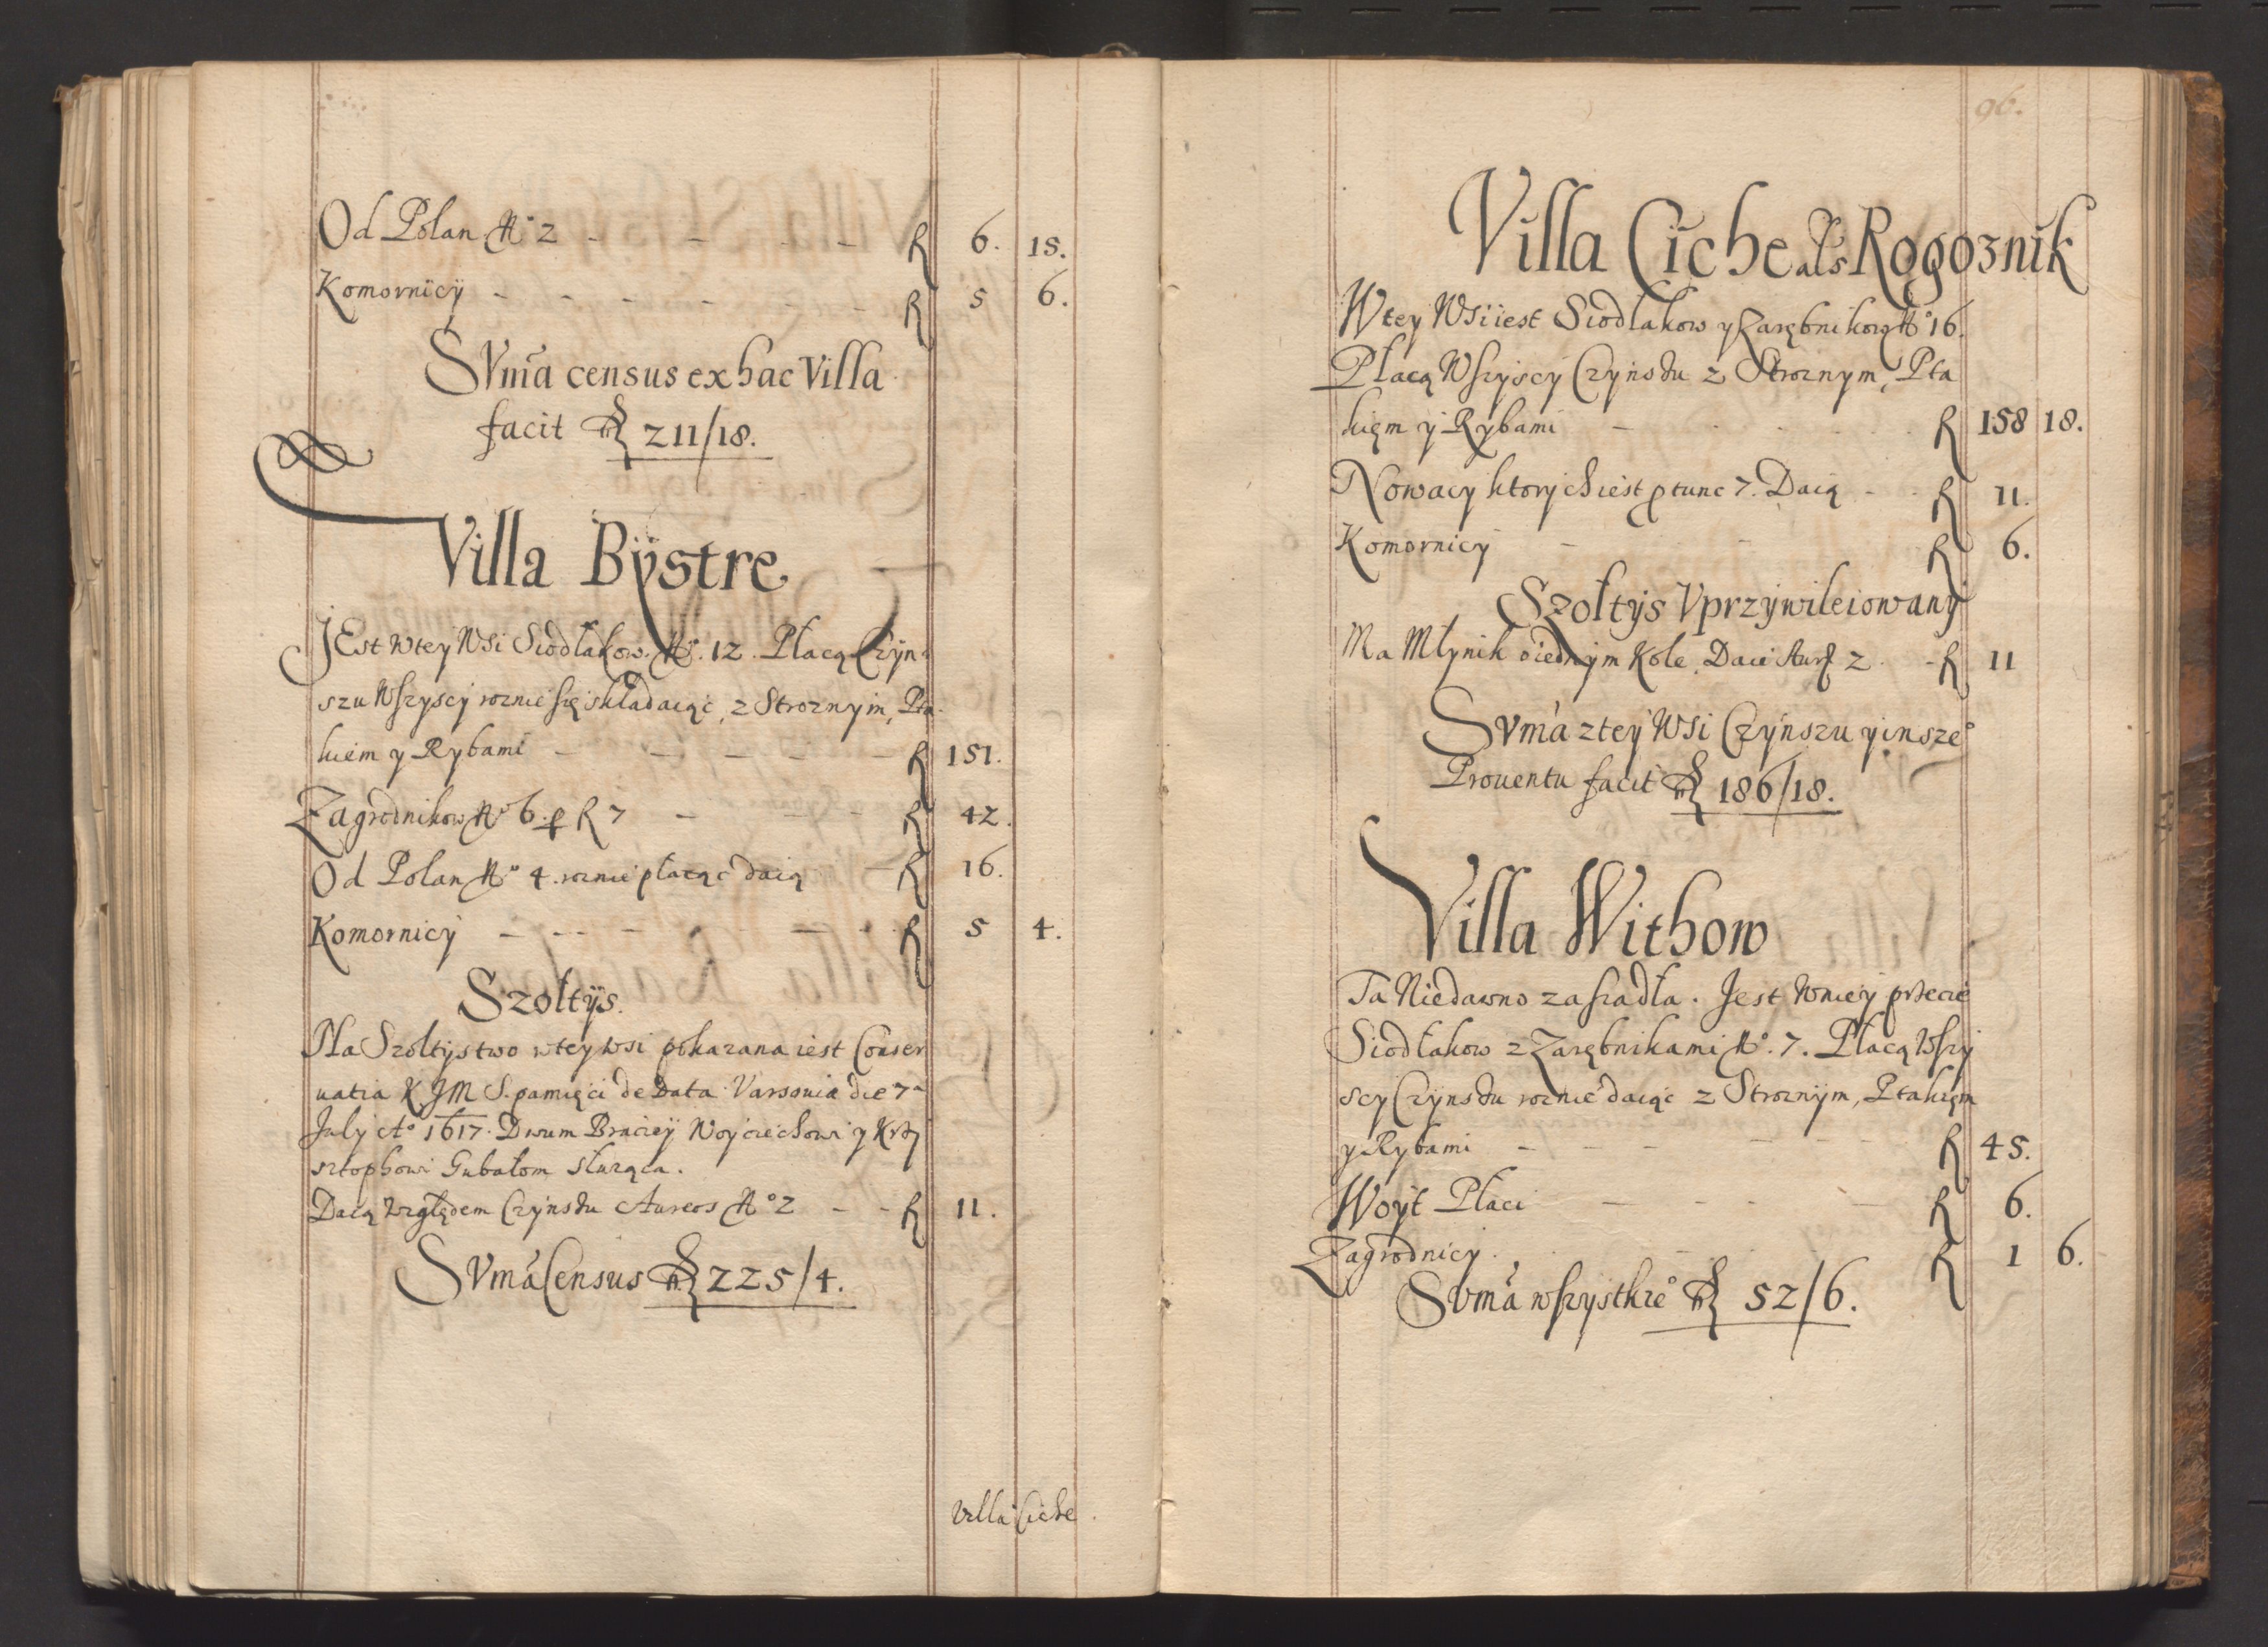 Od Polan No 2 - - - - R 6. 15.
Komornicÿ - - - - - - R 5 6.
SVma census ex hac Villa
facit R 211/18.
Villa Bÿstre
JEst w teÿ WSi Siodłakow No. 12. Płacą Czÿn-
szu Wszyscÿ roznie się składaiąc, z Stroznÿm, Pta-
kiem y Rybami - - - - - R 151.
Zagrodnikow No 6. p R 7 - - - R 42.
Od Polan No 4. roznie płacąc daią - R 16.
Komornicÿ - - - - - - R 5 4.
Szołtÿs.
Na Szołtÿstwo w teÿ wsi pokazana iest Conser
uatia K JM S. pamięci de Data Varsouia die 7a
Julÿ Ao 1617. Dwum Bracieÿ Woÿciechowi y Krzÿ
sztophowi Gubałom służąca.
Daią względem Czÿnszu Aureos No 2 - - R 11.
SVma Census R 225/4.
Villa Ciche.
96.
Villa Ciche als Rogoznik
W teÿ WSi iest Siodłakow y Zarębnikow No 16.
Płacą Wszÿscÿ Czÿnszu z Stroznym, Pta
kięm ÿ Rÿbami - - - - R 158 18.
Nowacy ktorÿch iest p tunc 7. Daią - - R 11.
Komornicÿ - - R 6.
Szołtÿs Vprzÿwileiowanÿ
Ma Młÿnik o iednÿm Kole. Daie Aur 2. - R 11
SVma z teÿ WSi Czÿnszu y inszeo
Prouentu facit R 186/18.
Villa Withow
Ta Niedawno zasiadła. Jest w nieÿ przecie
Siodłakow z Zarębnikami No. 7. Płacą Wszÿ
scÿ Czÿnszu roznie daiąc z Stroznÿm, Ptakięm
y Rÿbami - - - - - - R 45.
Woÿt Płaci - - - - R 6.
Zagrodnicÿ. - R 1 6.
SVma wszystkieo R 52/6.